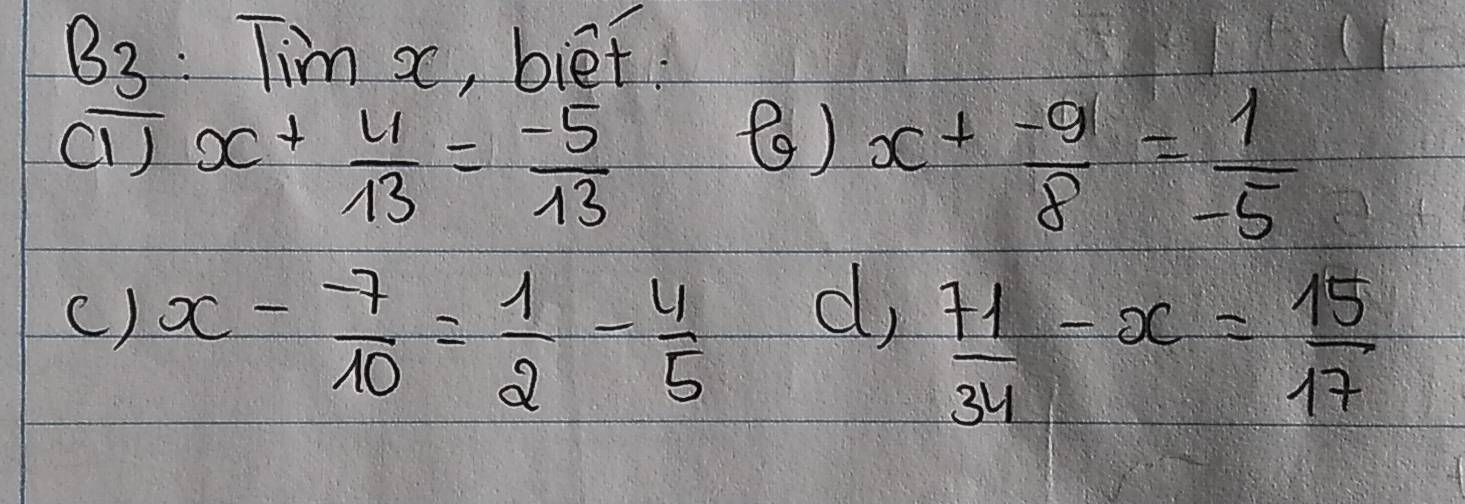 B3: Tìm x, biết:
a) x + 4/13 = -5/13 b) x + -9/8 = 1/-5
c) x - -7/10 = 1/2 - 4/5 d, 71/34 - x = 15/17